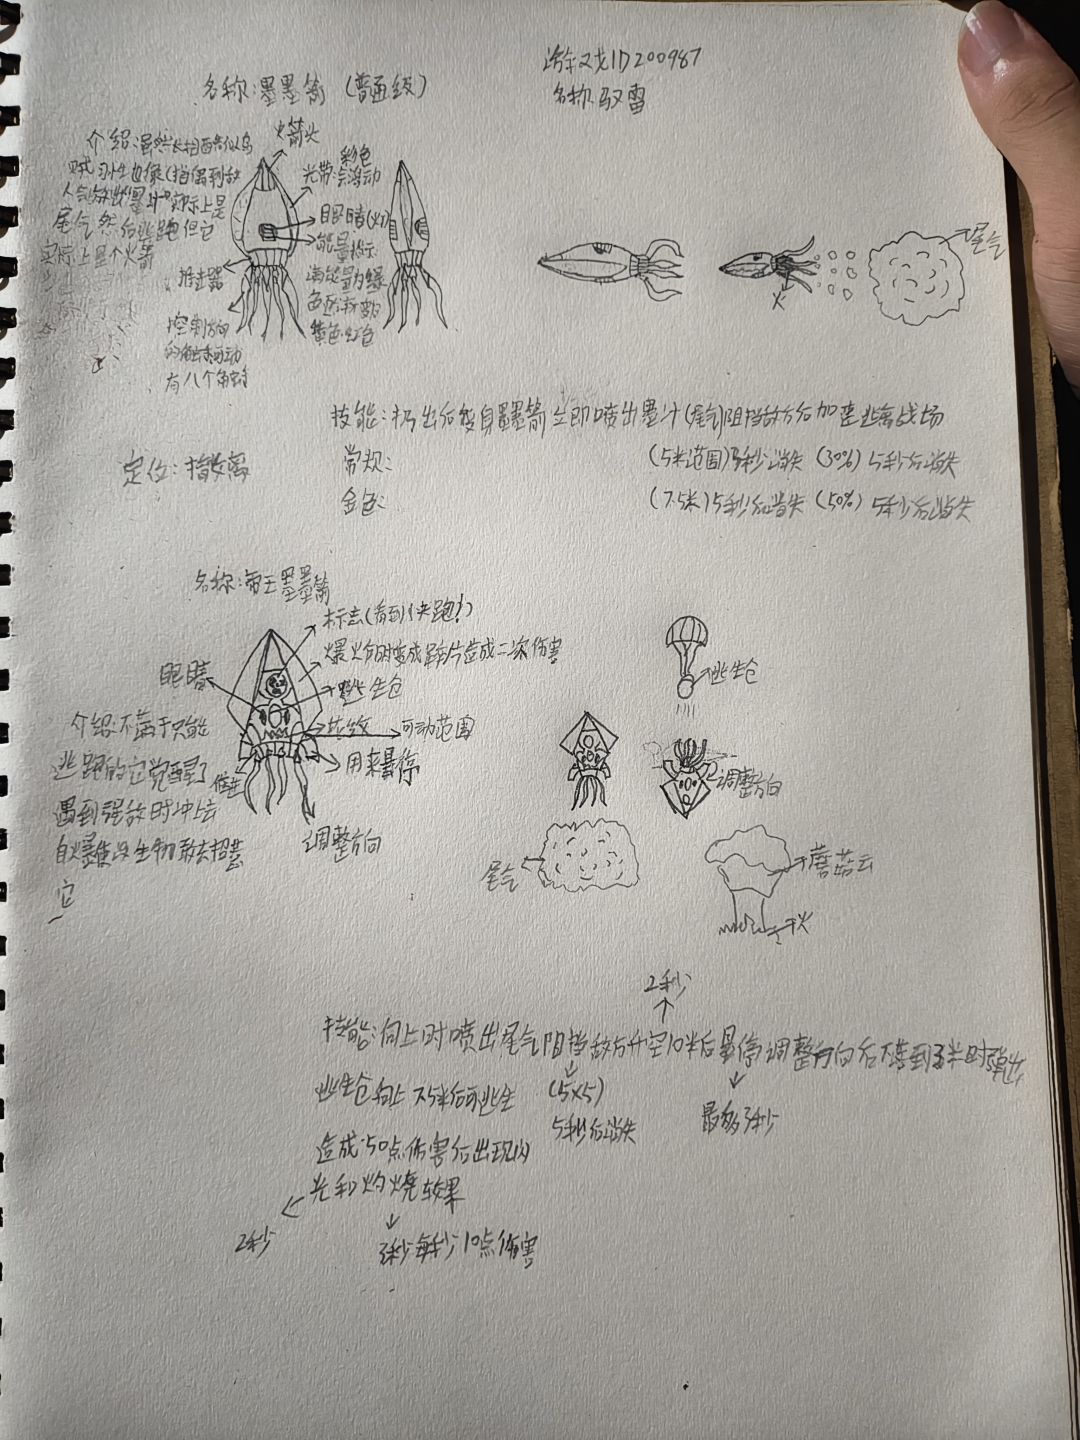 游戏ID200987
名称驭雷
名称:墨墨箭 (普通级)
介绍:虽然长相酷似乌
贼习性也像(指遇到敌
人会喷出"墨汁"实际上是
尾气然后逃跑但它
实际上是个火箭
火箭头
光带:彩色
会浮动
眼睛(灯)
能量指示
满能量为绿
色逐渐变
黄色红色
推击器
控制方向
的触手可动
有八个
火
尾气
技能:扔出后变身墨墨箭立即喷出墨汁(尾气)阻挡敌方后加速逃离战场
定位:
常规: (5米范围)3秒消失 (30%) 5秒后消失
金色: (7.5米)5秒后消失 (50%) 5秒后消失
名称:帝王墨墨箭
标志(看到快跑!)
爆炸时变成碎片造成二次伤害
逃生仓
眼睛
花纹
可动范围
用来悬停
调整方向
介绍:不满于只能
逃跑的它觉醒了
遇到强敌时冲上去
自爆 生物敢去招惹
它
逃生仓
调整方向
尾气
蘑菇云
火
2秒
技能:向上时喷出尾气阻挡敌方升空10米后悬停调整方向后 到3米时弹出
逃生仓向上7.5米后可逃生 (5x5)
5秒后消失
最多3秒
造成50点伤害后出现闪
光和灼烧效果
2秒
3秒每秒10点伤害